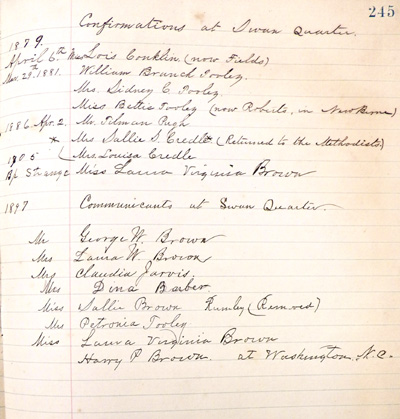 245
Confirmations at Swan Quarter.
1879.
April 6th Miss Lois Conklin. (now Fields)
Mar. 29th. 1881. William Branch Tooley.
Mrs. Sidney C. Tooley.
Miss Bettie Tooley (now Roberts, in New Berne)
1886. Apr. 2. Mr. Tilman Pugh
* Mrs Sallie S. Credle (Returned to the Methodists)
Mrs. Louisa Credle
1905 Miss Laura Virginia Brown
1897 Communicants at Swan Quarter.
Mr George W. Brown
Mrs Laura W. Brown
Mrs Claudia Jarvis.
Mrs Dina Barber
Miss Sallie Brown Rumley (Removed)
Mrs Petronia Tooley
Miss Laura Virginia Brown
Harry P. Brown. at Washington, N.C.